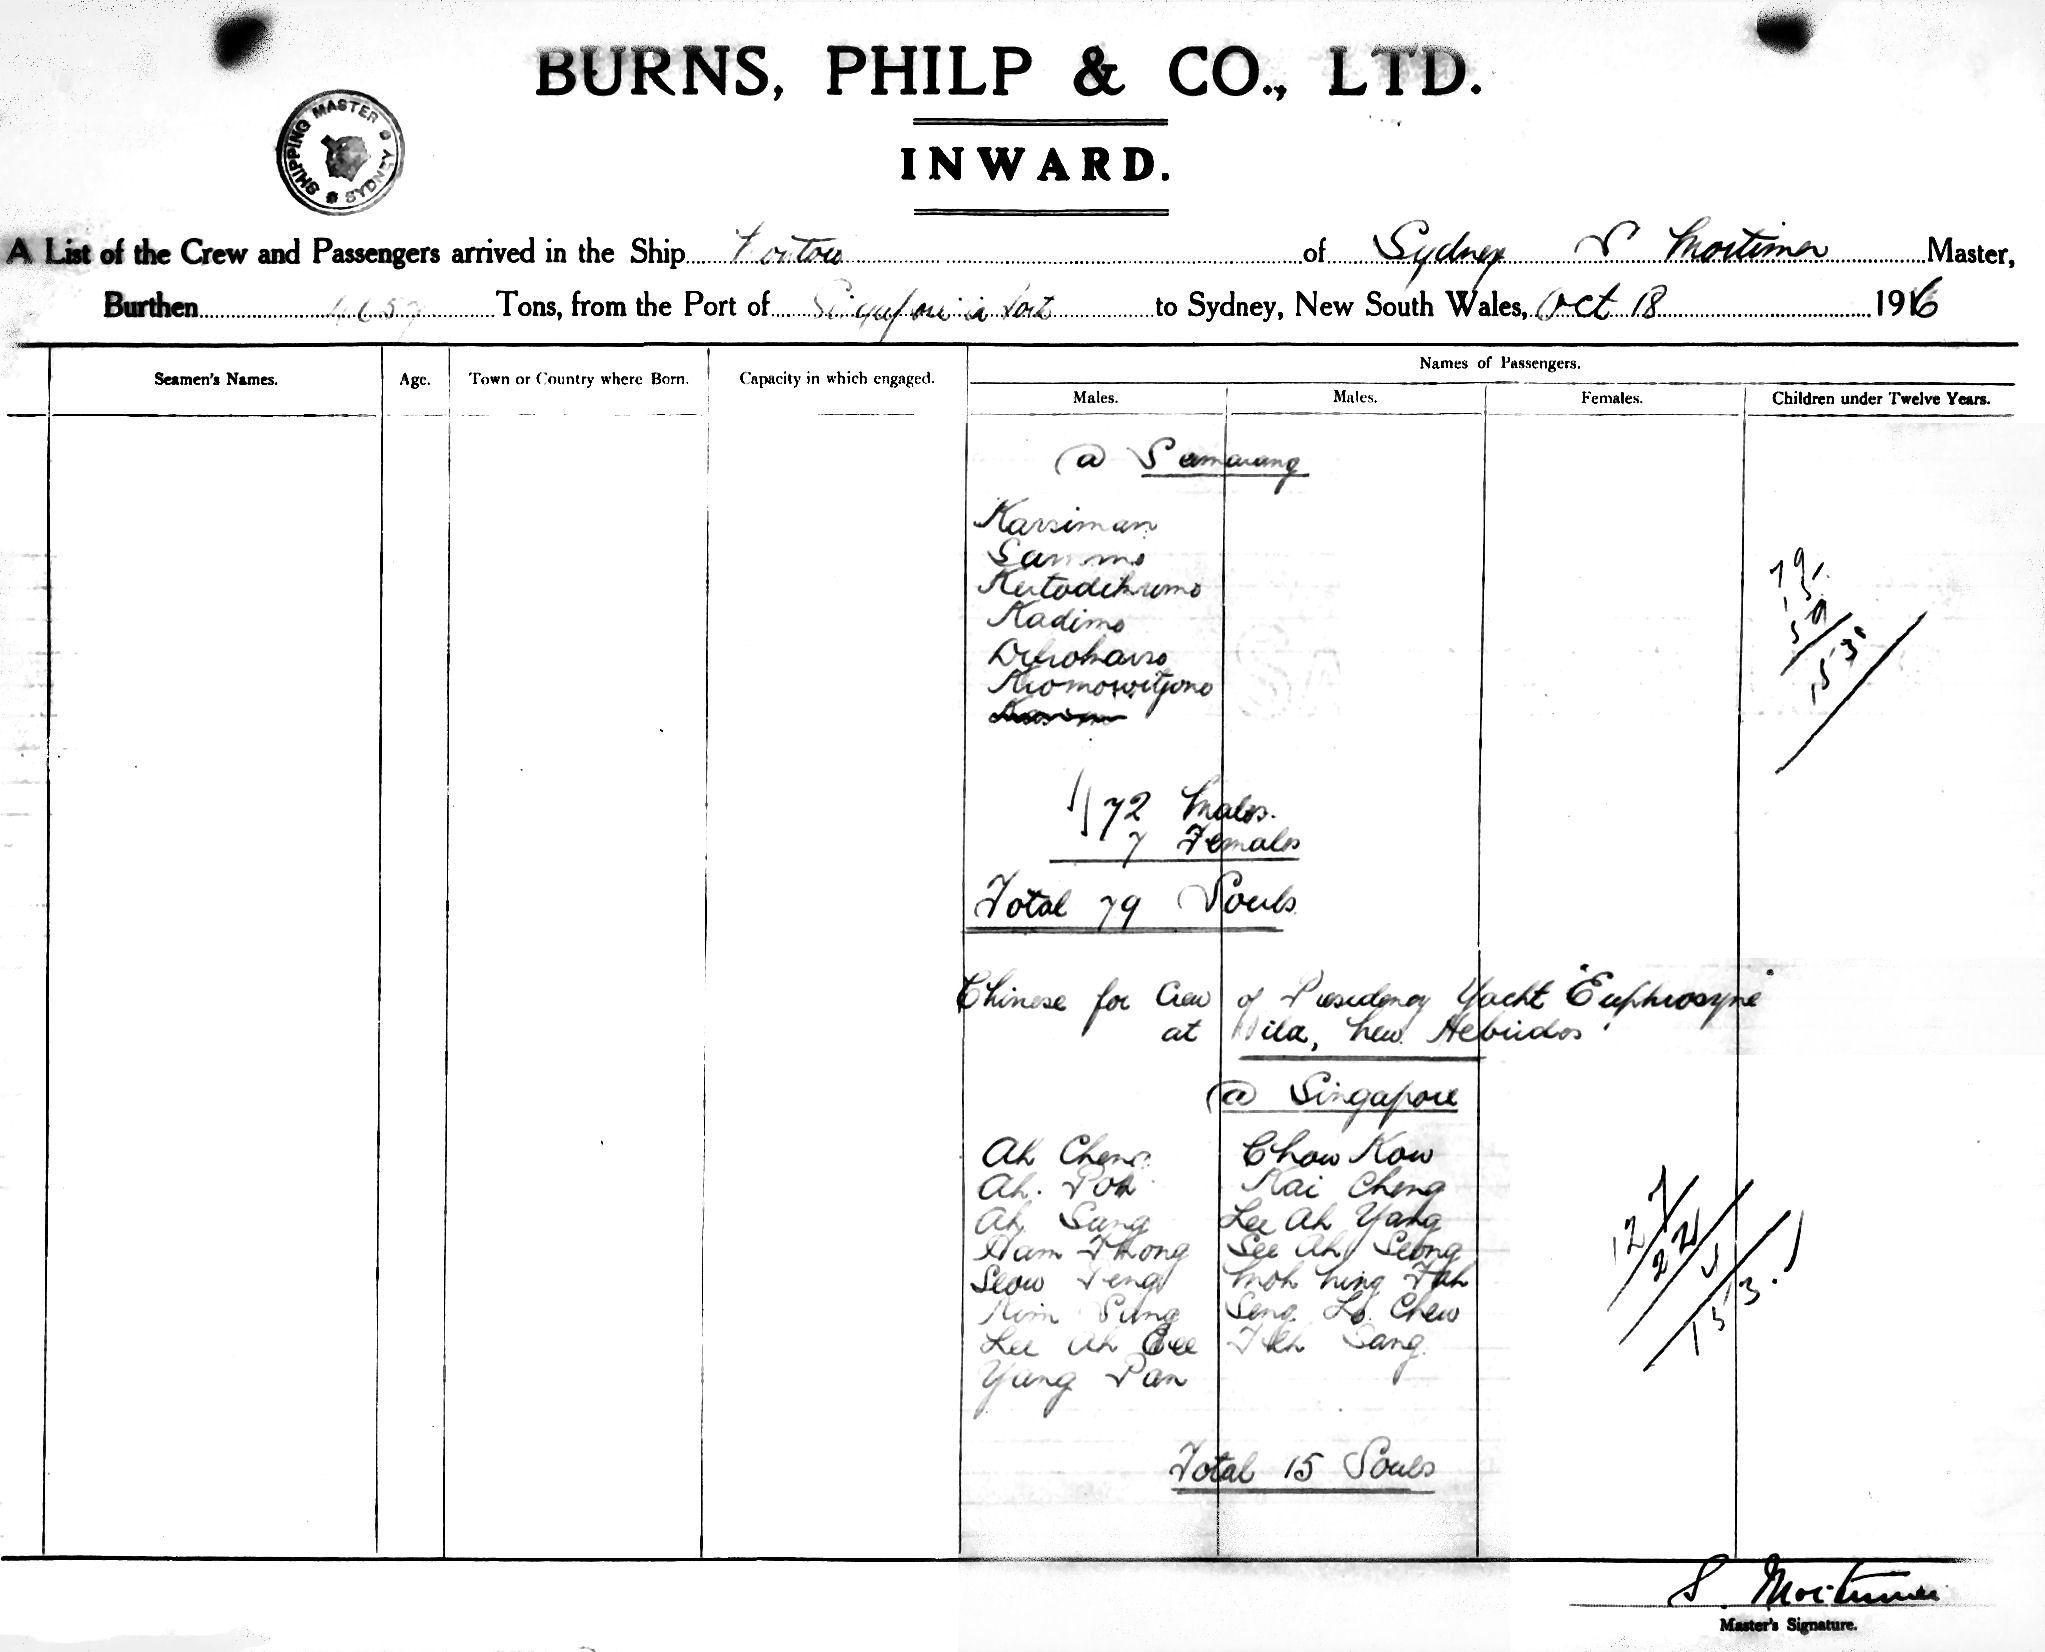 BURNS, PHILP & CO., LTD.
INWARD.
SHIPPING MASTER SYDNEY
A List of the Crew and Passengers arrived in the Ship of Sydney S Mortimer Master,
Burthen Tons, from the Port of Singapore to Sydney, New South Wales, Oct 18 1916
Names of Passengers.
Seamen's Names. Age. Town or Country where Born. Capacity in which engaged. Males. Males. Females. Children under Twelve Years.
@ Samarang
Karsiman
Kadimo
Kromowitjono
72 Males.
7 Females
Total 79 Souls
Chinese for Crew of Presidency Yacht "Euphrosyne"
at Vila, New Hebrides
@ Singapore
Ah Cheng Chow Kow
Ah. Poh Kai Cheng
Ah Sang Lee Ah Yang
Ham Thong See Ah Seong
Seow Peng Moh Ning Fah
Kim Sung Seng Lo Chew
Lee Ah Eee Sang
Yung Pan
79
15
59
153
127
22
4
153
Total 15 Souls
S. Mortimer
Master's Signature.